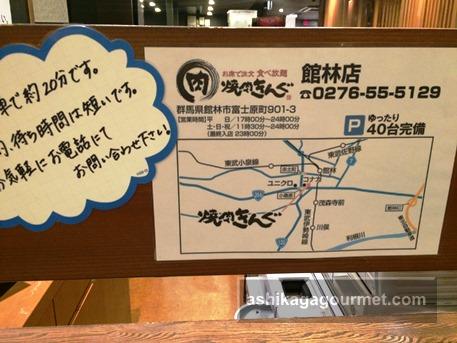 車で約20分です。
待ち時間は短いです。
気軽にお電話にて
お問い合わせ下さい!
肉
お席で注文 食べ放題
焼肉きんぐ
館林店
☎0276-55-5129
群馬県館林市富士原町901-3
【営業時間】 平 日/17時00分~24時00分
土・日・祝/11時30分~24時00分
(最終入店 23時00分)
P ゆったり
40台完備
東武佐野線
東武小泉線
館林
コナカ
ユニクロ
茂森寺前
焼肉きんぐ
東武伊勢崎線
川俣
利根川
ashikagagourmet.com